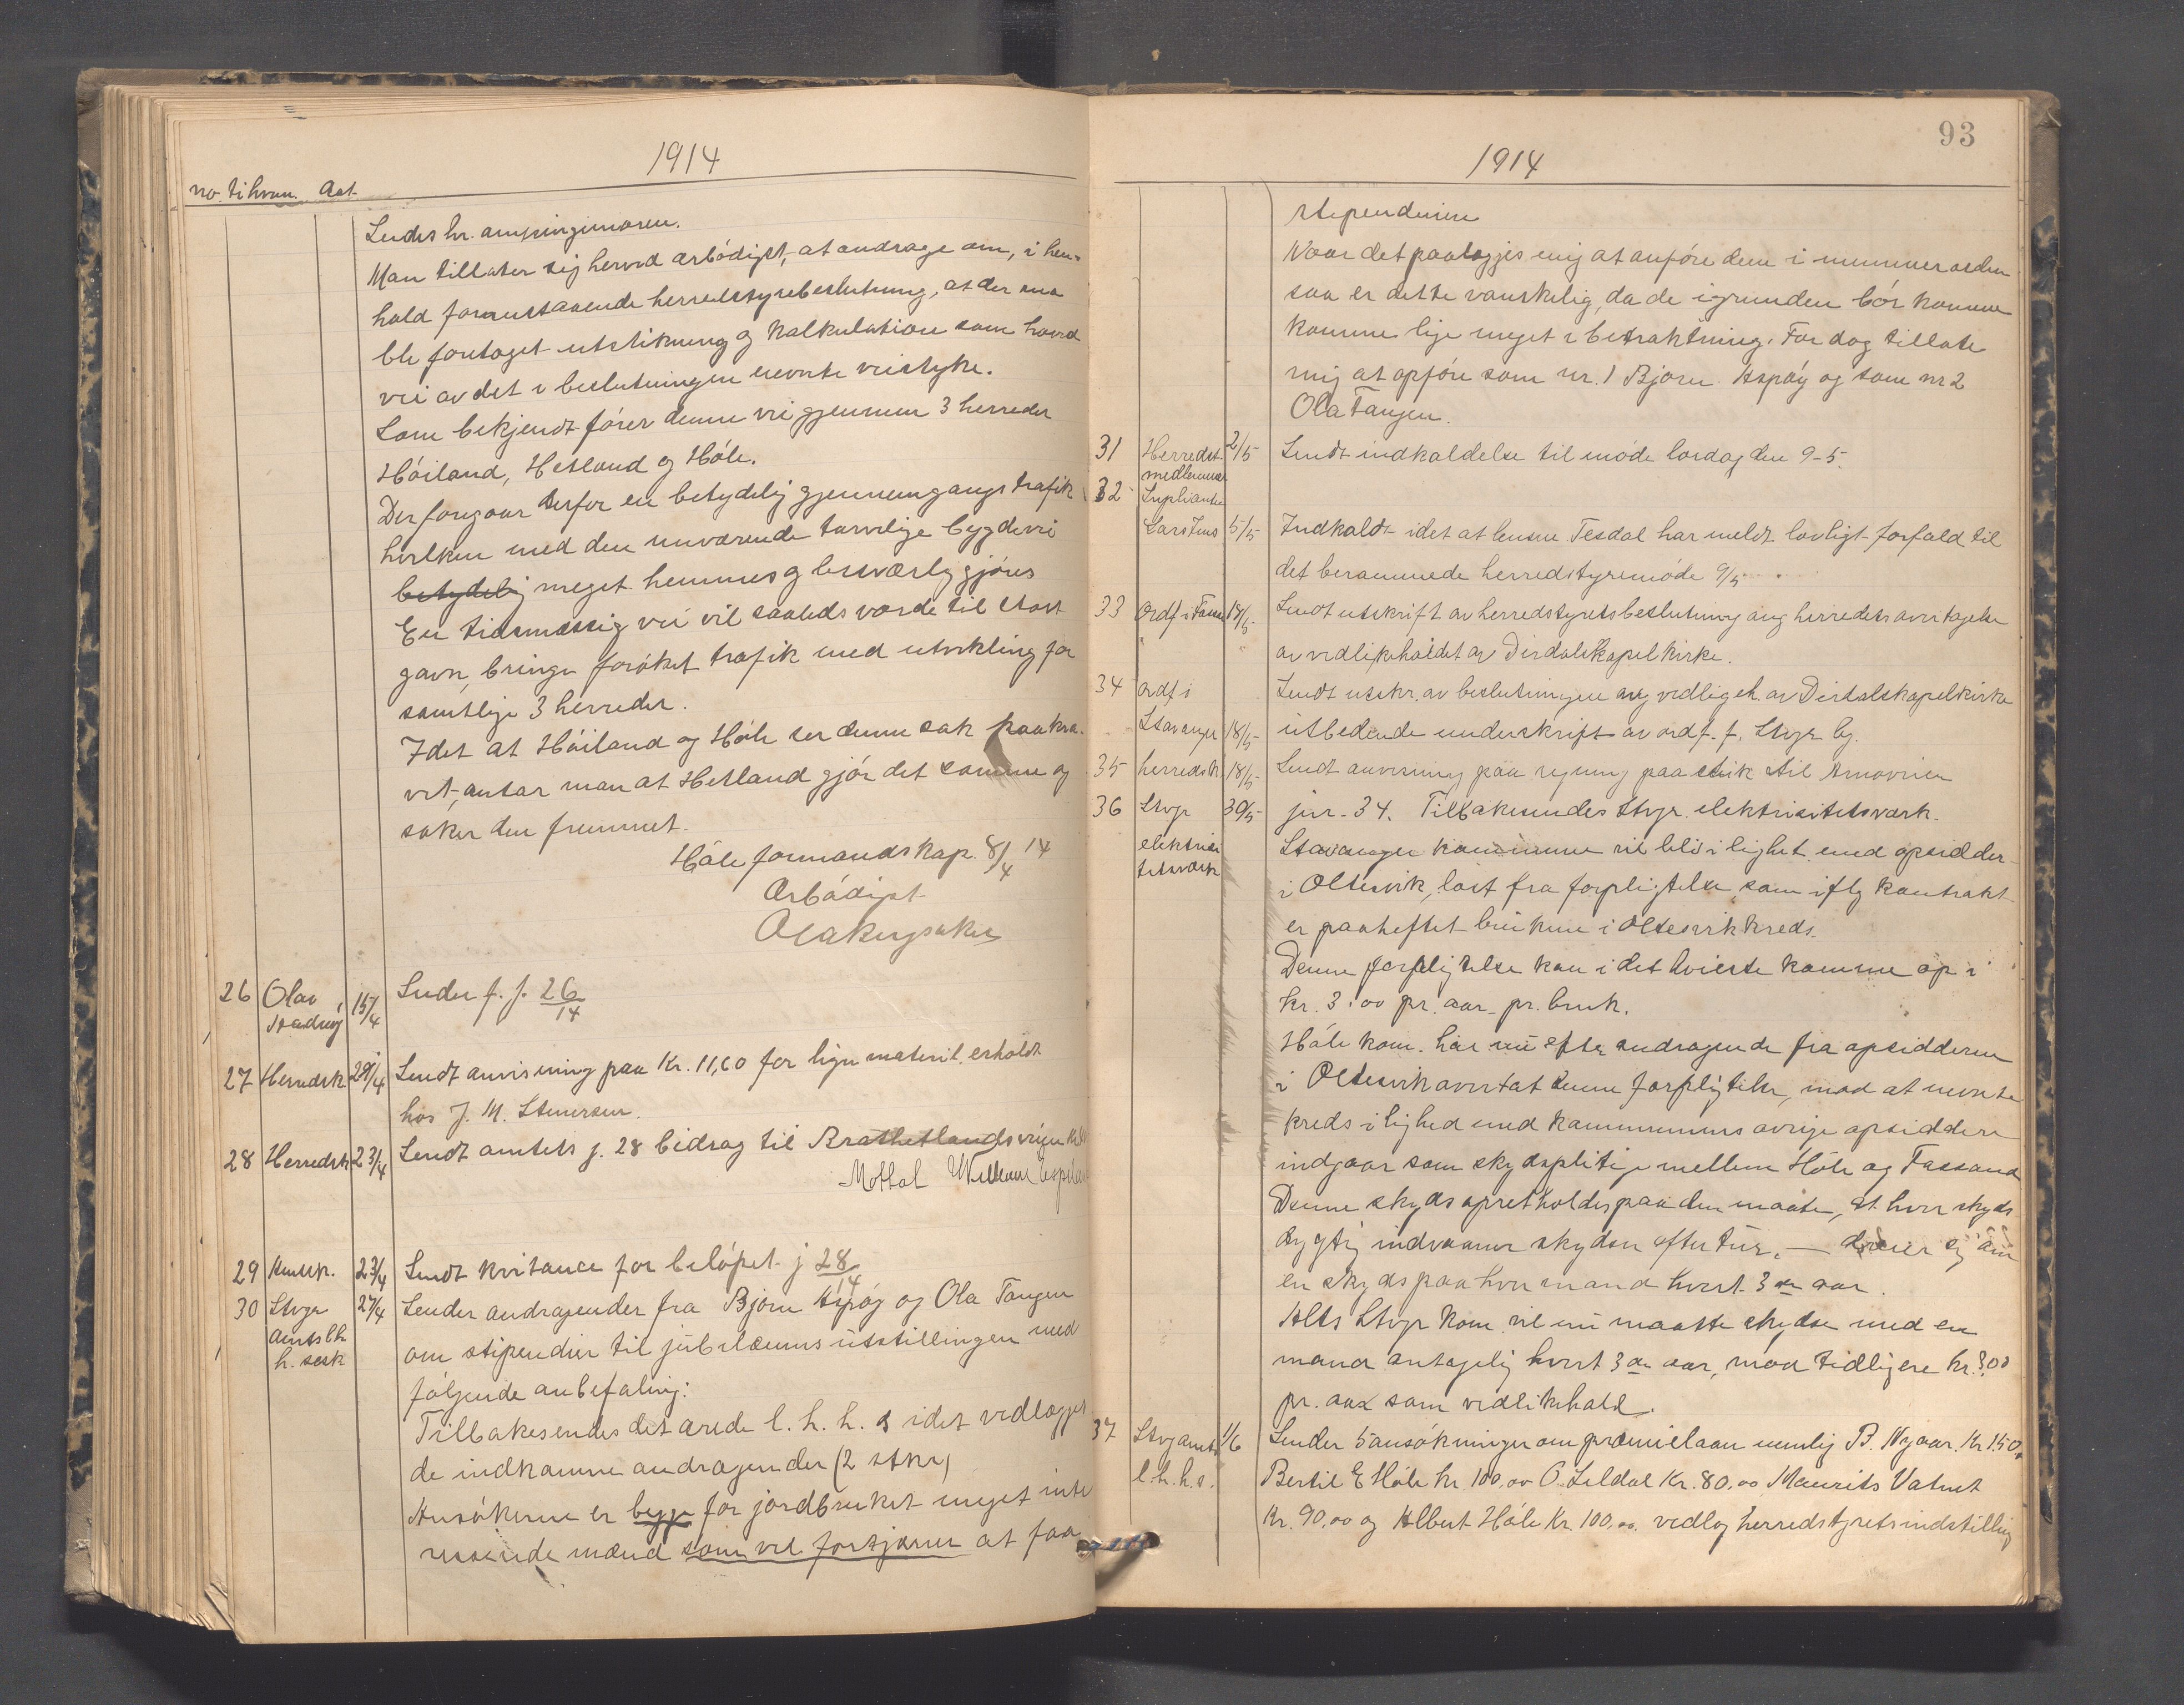 1914
no. til hvem. Dat.
Sendes hr. amtsingeniøren.
Man tillater sig herved ærbødigst, at andrage om, i hen-
hold foranstaaende herredsstyrebeslutning, at der maa
bli foretaget utstikning og kalkulation som hoved
vei av det i beslutningen nevnte veistykke.
Som bekjendt fører denne vei gjennem 3 herreder
Høiland, Hetland og Høle.
Der foregaar derfor en betydelig gjennemgangstrafik
hvilken med den nuværende tarvelige bygdevei
betydelig meget hemmes og besværliggjøres
En tidsmæssig vei vil saaleds være til stort
gavn, bringe forøket trafik med utvikling for
samtlige 3 herreder.
Idet at Høiland og Høle ser denne sak paakræ-
vet, antar man at Hetland gjør det samme og
søker den fremmet.
Høle formandskap 8/4 14
Ærbødigst
26 Olav 15/4 Sender f. j. 26/14
27 Herredsk 29/4 Sendt anvisning paa Kr. 11,60 for lign material erholdt
hos J. M. Stenersen.
28 Herredsk 23/4 Sendt amtets j. 28 bidrag til Brathetlandsveien
Mottat Willum Espeland
29 Amtsk. 23/4 Sendt kvitance for beløpet j 28/14
30 Stvgr 27/4 Sender andragender fra Bjørn Aspøy og Ola Tangen
amts lh om stipendier til jubilæumsutstillingen med
h. selsk følgende anbefaling:
Tilbakesendes det ærede l. h. h. s idet vedlægges
de indkomne andragender (2 stkr)
Ansøkerne er begge for jordbruket meget inte
resserede mænd som vel fortjener at faa
93
1914
stipendium
Naar det paalægges mig at anføre dem i nummerorden
saa er dette vanskelig, da de i grunden bør komme
komme lige meget i betraktning. For dog tillate
mig at opføre som nr. 1 Bjørn Aspøy og som nr 2
Ola Tangen.
31 Herredst. 2/5 Sendt indkaldelse til møde lørdag den 9-5.
medlemmer
32 Supleanten
Lars Imes 5/5 Indkaldt idet at lensm. Tesdal har meldt lovligt forfald til
det berammede herredstyremøde 9/5
33 Ordf i Forsand 18/5 Sendt utskrift av herredstyrets beslutning ang herredets overtagelse
av vedlikeholdet av Dirdalskapelkirke.
34 ordf i Sendt utskr. av beslutningen ang vedligeh. av Dirdalskapelkirke
Stavanger 18/5 utbedende underskrift av ordf. f. Stvgr by.
35 herredsk. 18/5 Sendt anvisning paa regning paa stik til Amoveien
36 Stvgr 30/5 jnr. 34. Tilbakesendes Stvgr. elektrisitetsværk.
elektrisi Stavanger kommune vil bli i lighet med opsidder
tetsværk i Oltesvik, løst fra forpligtelse som iflg kontrakt
er paaheftet brukene i Oltesvik kreds.
Denne forpligtelse kan i det høieste komme op i
kr. 3.00 pr. aar pr. bruk.
Høle kom. har nu efter andragende fra opsidderne
i Oltesvik overtat denne forpligtelse, mod at nevnte
kreds i lighed med kommunens øvrige opsiddere
indgaar som skydspligtige mellem Høle og Fossand
Denne skyds opretholdes paa den maate, at hver skyds
dygtig indvaaner skydser efter tur, — dreier sig om
en skyds paa hver mand hvert 3 die aar.
Alts Stvgr kom. vil nu maatte skydse med en
mand antagelig hvert 3 die aar, mod tidligere kr. 3.00
pr. aar som vedlikehold.
37 Stvg amts 1/6 Sender 5 ansøkninger om præmielaan nemlig B. Nygaar. Kr 150.
l. h. h. s. Bertil E Høle kr 100,00 O. Seldal Kr. 80.00 Maurits Vatnet
Kr. 90,00 og Albert Høle Kr 100,00. vedlag herredstyrets indstilling